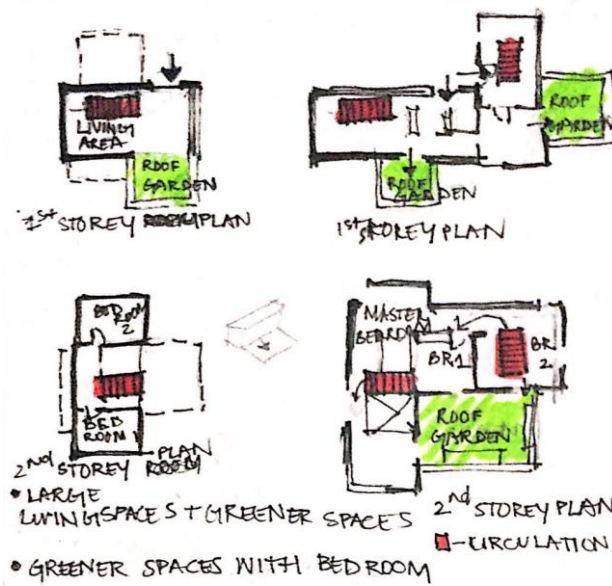 LIVING
AREA
ROOF
GARDEN
1ST STOREY PLAN
ROOF
GARDEN
ROOF
GARDEN
1ST STOREY PLAN
BED
ROOM
2
BED
ROOM 1
2ND STOREY PLAN
ROOM
MASTER
BEDROOM
BR1
BR
2
ROOF
GARDEN
2nd STOREY PLAN
• LARGE
LIVINGSPACES + GREENER SPACES
- CIRCULATION
• GREENER SPACES WITH BEDROOM